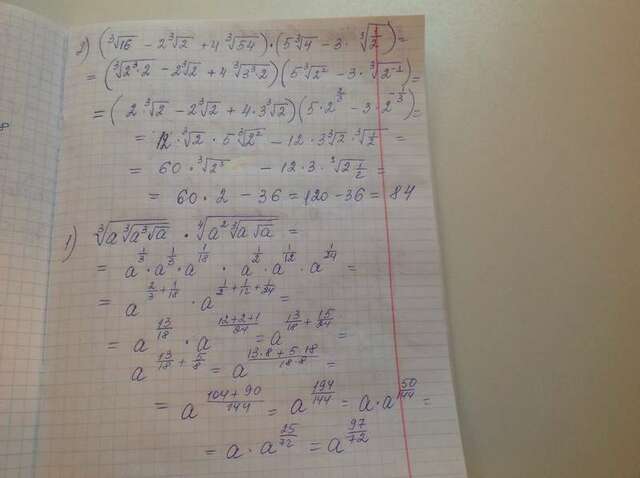 2) (∛16 - 2∛2 + 4∛54)·(5∛4 - 3·∛(1/2)) =
= (∛(2³·2) - 2∛2 + 4∛(3³·2))(5∛2² - 3·∛2⁻¹) =
= (2·∛2 - 2∛2 + 4·3∛2)(5·2^(2/3) - 3·2^(-1/3)) =
= 12·∛2·5∛2² - 12·3∛2·∛(1/2) =
= 60·∛2³ - 12·3·∛(2 1/2) =
= 60·2 - 36 = 120 - 36 = 84
1) ∛(a∛(a³√a)) · ∜(a²∛(a√a)) =
= a^(1/3)·a^(1/3)·a^(1/18) · a^(1/2)·a^(1/12)·a^(1/24) =
= a^(2/3+1/18) · a^(1/2+1/12+1/24) =
= a^(13/18) · a^((12+2+1)/24) = a^(13/18+15/24) =
a^(13/18+5/8) = a^((13·8+5·18)/(18·8)) =
= a^((104+90)/144) = a^(194/144) = a·a^(50/144) =
= a·a^(25/72) = a^(97/72)